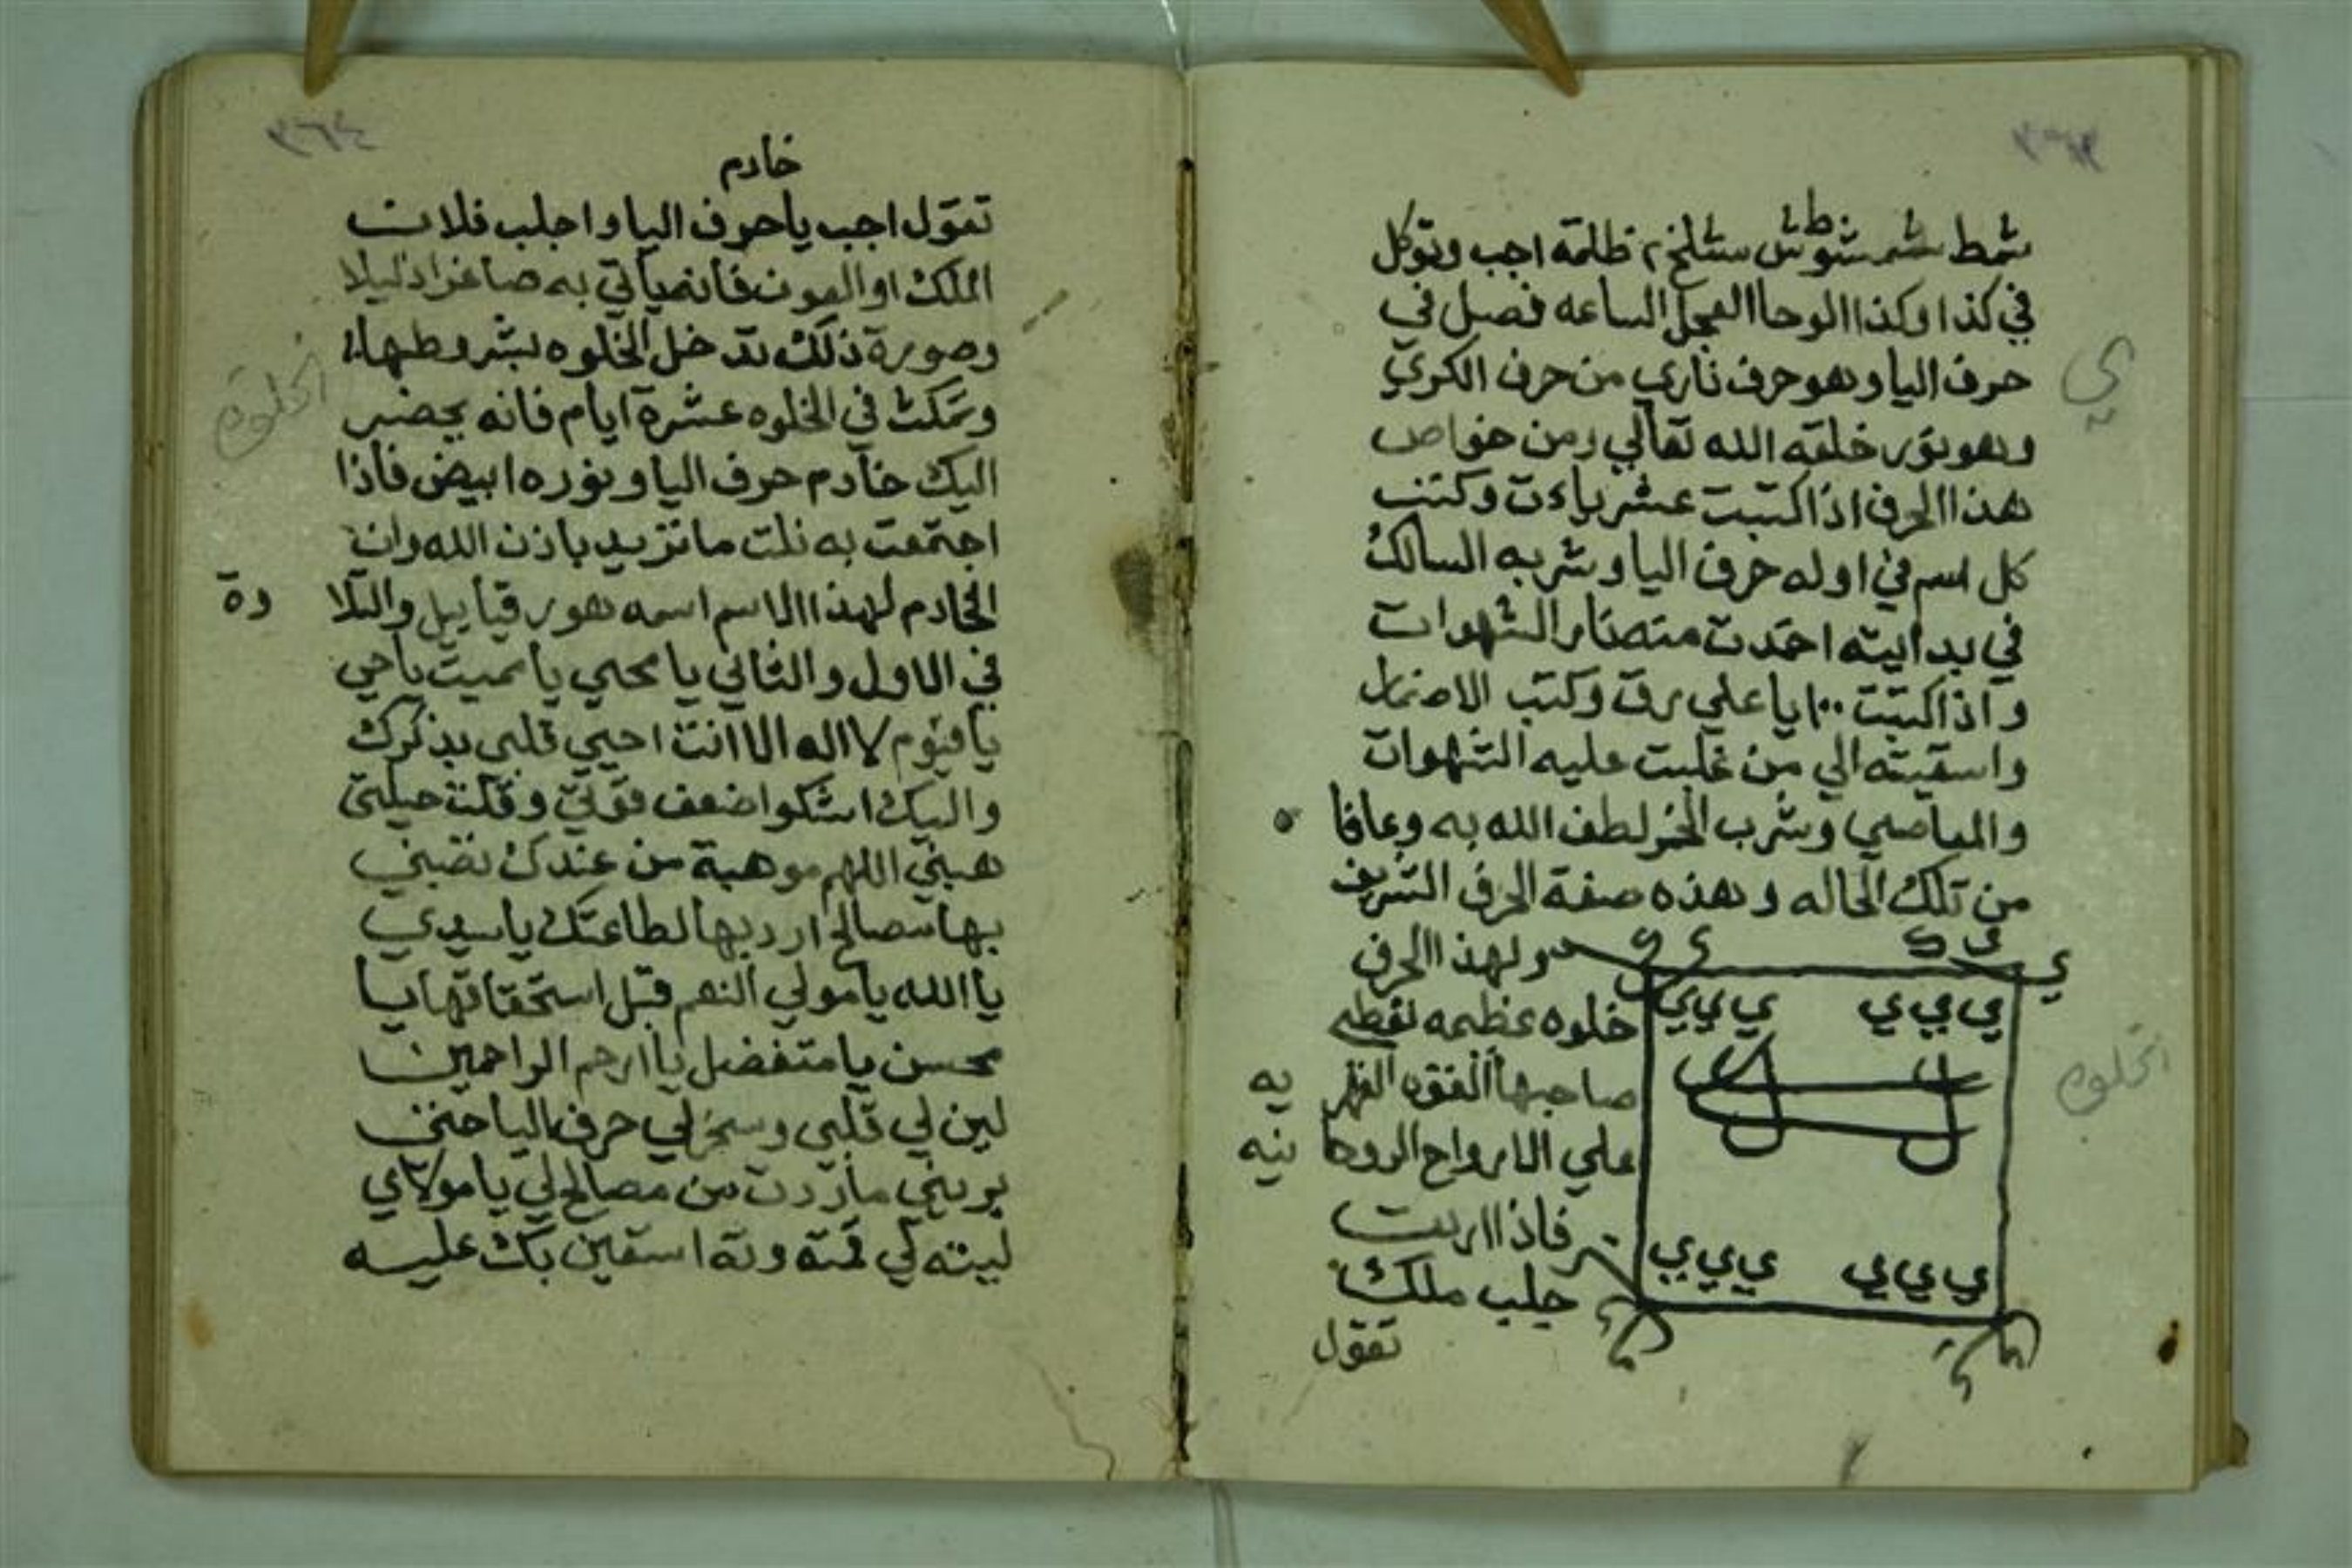 ٣٦٣
شمط شمر شوطش شلخ ظلمة اجب وتوكل
في كذا وكذا الوحا العجل الساعه فصل في
حرف اليا وهو حرف ناري من حرف الكري
ي
وهو نور خلقه الله تعالي ومن خواص
هذا الحرف اذا كتبت عشر ياءت وكتب
كل اسم في اوله حرف اليا وشربه السالك
في بدايته احمدت الشهوات
واذا كتبت ١٠٠ يا علي رق وكتب الاضمار
واسقيته الي من غلبت عليه الشهوات
والمعاصي وشرب الخمر لطف الله به وعافا ه
من تلك الحاله وهذه صفة الحرف الشريف
ولهذا الحرف
خلوه عظيمه تعطي
صاحبها القوه القهر يه
علي الارواح الروحا نيه
فاذا اردت
جلب ملك
تقول
ي ي ي ي ي ي
ي ي ي ي ي ي
الخلوه
٣٦٤
خادم
تقول اجب يا حرف اليا واجلب فلان
الملك او العون فانه ياتي به صاغرا ذليلا
وصورة ذلك تدخل الخلوه بشروطها
وتمكث في الخلوه عشرة ايام فانه يحضر
الخلوه
اليك خادم حرف اليا ونوره ابيض فاذا
اجتمعت به نلت ما تريد باذن الله وان
الخادم لهذا الاسم اسمه هورقيائيل والتلا وة
في الاول والثاني يا محيي يا مميت يا حي
يا قيوم لا اله الا انت احيي قلبي بذكرك
واليك اشكوا ضعف قوتي وقلت حيلتي
هبني اللهم موهبة من عندك
بها مصالح ارد بها لطاعتك يا سيدي
يا الله يا مولي النعم قبل استحقاقها يا
محسن يا متفضل يا ارحم الراحمين
لين لي قلبي وسخر لي حرف اليا حتي
يريني ما اردت من مصالح لي يا مولاي
لي استعين بك عليه